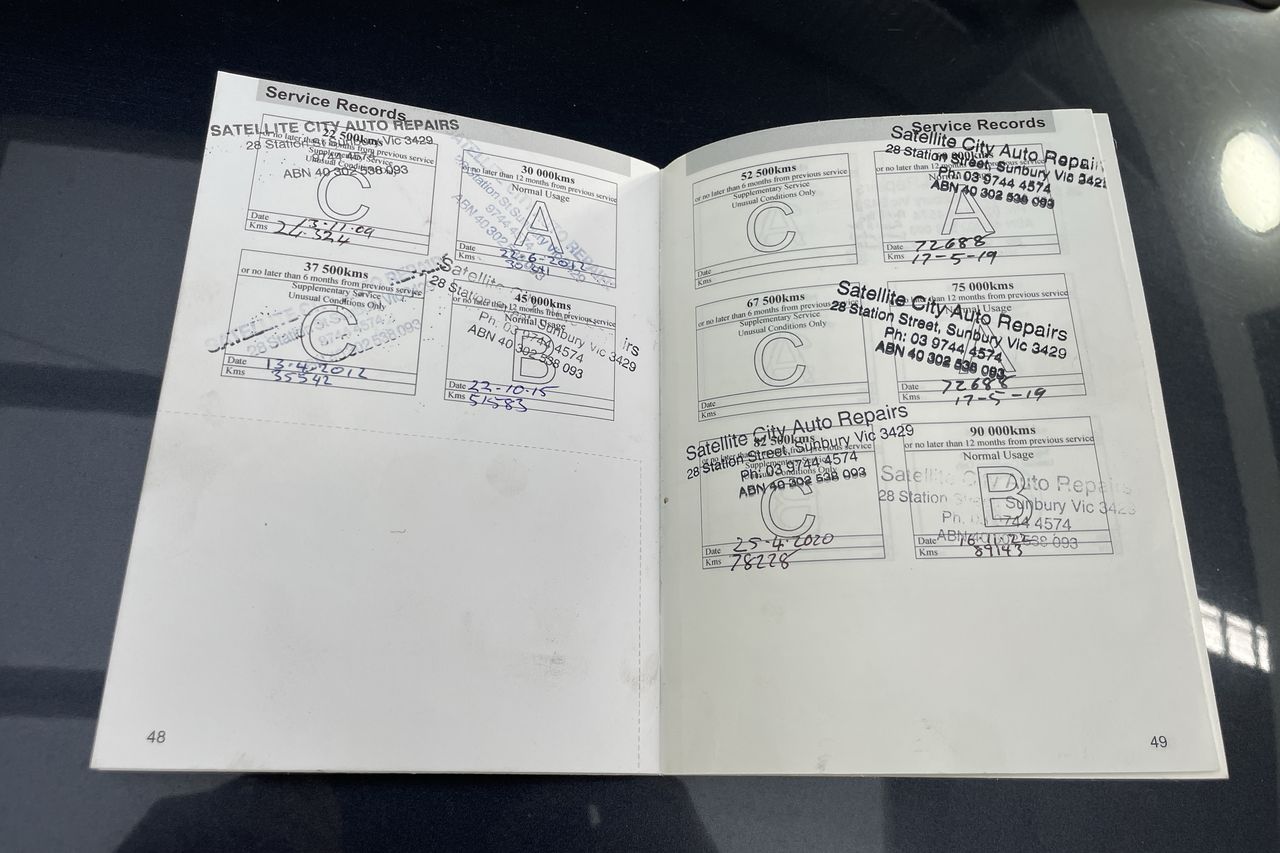 Service Records
SATELLITE CITY AUTO REPAIRS
22 500kms
or no later than 6 months from previous service
28 Station St Sunbury Vic 3429
Supplementary Service
Unusual Conditions Only
ABN 40 302 538 093
C
Date 13-11-09
Kms 21.324
30 000kms
or no later than 12 months from previous service
Normal Usage
9744 4574
ABN 40 302
A
Date 22-6-2012
Kms
37 500kms
or no later than 6 months from previous service
Supplementary Service
Unusual Conditions Only
28 Station St Sunbury
9744 4574
302 538 093
C
Date 13.4.2012
Kms 35542
Satellite
45 000kms
28 Station
or no later than 12 months from previous service
Normal Usage
Sunbury Vic 3429
Ph: 03 9744 4574
ABN 40 302 538 093
B
Date 22-10-15
Kms 51583
48
Service Records
52 500kms
or no later than 6 months from previous service
Supplementary Service
Unusual Conditions Only
C
Date
Kms
Satellite City Auto Repairs
28 Station Street, Sunbury Vic 3429
Ph: 03 9744 4574
ABN 40 302 538 093
A
Date 72688
Kms 17-5-19
67 500kms
or no later than 6 months from previous service
Supplementary Service
Unusual Conditions Only
C
Date
Kms
75 000kms
or no later than 12 months from previous service
Satellite City Auto Repairs
28 Station Street, Sunbury Vic 3429
Ph: 03 9744 4574
ABN 40 302 538 093
A
72688
17-5-19
Satellite City Auto Repairs
82 500kms
28 Station Street, Sunbury Vic 3429
or no later than 6 months from previous service
Supplementary Service
Unusual Conditions Only
Ph: 03 9744 4574
ABN 40 302 538 093
C
Date 25-4-2020
Kms 78228
90 000kms
or no later than 12 months from previous service
Normal Usage
Satellite City Auto Repairs
28 Station Sunbury Vic 3429
Ph: 03 9744 4574
ABN 40 302 538 093
B
Date
Kms 89143
49